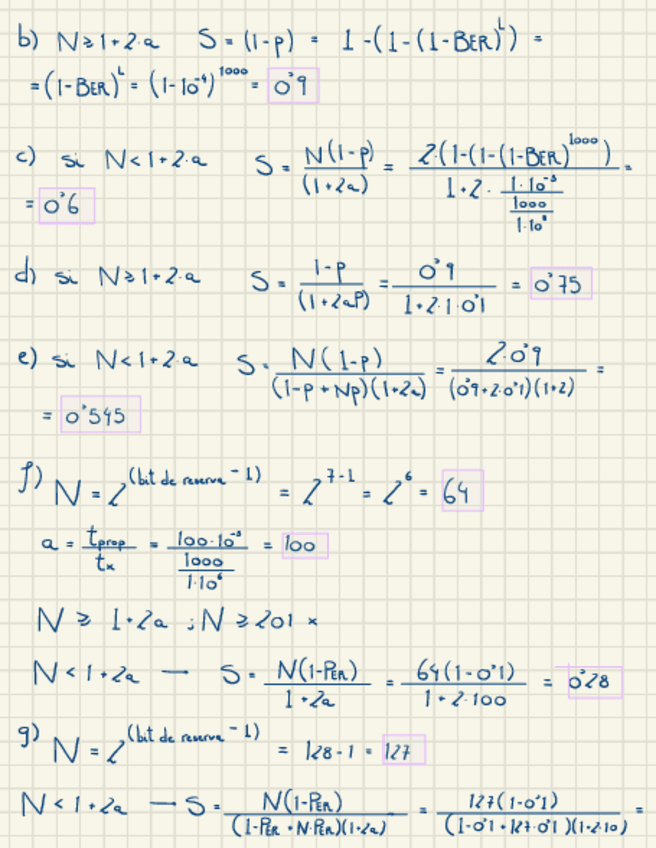 b) N ≥ 1 + 2·a   S = (1-p) = 1 - (1 - (1-BER)^L) =
= (1-BER)^L = (1-10^-4)^1000 = 0'9
c) si N < 1 + 2·a   S = N(1-p) / (1+2a) = 2·(1-(1-(1-BER)^1000) / (1+2· (1·10^-3 / (1000 / 1·10^6))) =
= 0'6
d) si N ≥ 1 + 2·a   S = 1-p / (1+2aP) = 0'9 / (1+2·1·0'1) = 0'75
e) si N < 1 + 2·a   S = N(1-p) / (1-p+Np)(1+2a) = 2·0'9 / (0'9+2·0'1)(1+2) =
= 0'545
f) N = 2^(bit de reserva - 1) = 2^7-1 = 2^6 = 64
a = tprop / tx = 100·10^-3 / (1000 / 1·10^6) = 100
N ≥ 1+2a ; N ≥ 201 x
N < 1+2a — S = N(1-PER) / 1+2a = 64(1-0'1) / 1+2·100 = 0'28
g) N = 2^(bit de reserva - 1) = 128-1 = 127
N < 1+2a — S = N(1-PER) / (1-PER+N·PER)(1+2a) = 127(1-0'1) / (1-0'1+127·0'1)(1+2·10) =